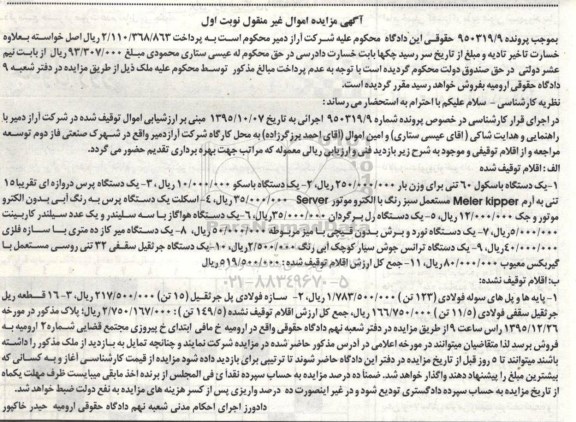 آگهی مزایده اموال غیر منقول نوبت اول
بموجب پرونده ۹۵۰۳۱۹/۹ حقوقی این دادگاه محکوم علیه شرکت آراز دمیر محکوم است به پرداخت ۲/۱۱۰/۳۶۸/۸۶۳ ریال اصل خواسته بعلاوه
خسارت تاخیر تادیه و مبلغ از تاریخ سر رسید چکها بابت خسارت دادرسی در حق محکوم له عیسی ستاری محمودی مبلغ ۹۳/۳۰۷/۰۰۰ ریال از بابت نیم
عشر دولتی در حق صندوق دولت محکوم گردیده است با توجه به عدم پرداخت مبالغ مذکور توسط محکوم علیه ملک ذیل از طریق مزایده در دفتر شعبه ۹
دادگاه حقوقی ارومیه بفروش خواهد رسید مقرر گردیده است.
نظریه کارشناسی - سلام علیکم با احترام به استحضار می رساند:
در اجرای قرار کارشناسی در خصوص پرونده شماره ۹۵۰۳۱۹/۹ اجرائی به تاریخ ۱۳۹۵/۱۰/۰۷ مبنی بر ارزشیابی اموال توقیف شده در شرکت آراز دمیر با
راهنمایی و هدایت شاکی (آقای عیسی ستاری) و امین اموال (آقای احمد پرزگرزاده) به محل کارگاه شرکت آرازدمیر واقع در شهرک صنعتی فاز دوم توسعه
مراجعه و از اقلام توقیفی و موجود به شرح زیر بازدید فنی و ارزیابی ریالی معموله که مراتب جهت بهره برداری تقدیم حضور می گردد.
الف: اقلام توقیف شده
۱- یک دستگاه باسکول ۶۰ تنی برای وزن بار ۲۵۰/۰۰۰/۰۰۰ ریال، ۲- یک دستگاه باسکو ۱۰/۰۰۰/۰۰۰ ریال، ۳- یک دستگاه پرس دروازه ای تقریبا ۱۵
تنی به آرم Meler kipper مستعمل سبز رنگ با الکترو موتور Server ۳۵/۰۰۰/۰۰۰ ریال، ۴- اسکلت یک دستگاه پرس به رنگ آبی بدون الکترو
موتور و جک ۱۲/۰۰۰/۰۰۰ ریال، ۵- یک دستگاه رل برگردان ۳۵/۰۰۰/۰۰۰ ریال، ۶- یک دستگاه هواگاز با سه سلیندر و یک عدد سیلندر کاربینت
۵/۰۰۰/۰۰۰ ریال، ۷- یک دستگاه نورد و برش بدون قیچی با میز مربوطه ۵۰/۰۰۰/۰۰۰ ریال، ۸- یک دستگاه میز کار ده متری با سازه فلزی
۴۰/۰۰۰/۰۰۰ ریال، ۹- یک دستگاه ترانس جوش سیار کوچک آبی رنگ ۲/۵۰۰/۰۰۰ ریال، ۱۰- یک دستگاه جرثقیل سقفی ۳۲ تنی روسی مستعمل با
گیربکس معیوب ۸۰/۰۰۰/۰۰۰ ریال، ۱۱- جمع کل ارزش اقلام توقیف شده: ۵۱۹/۵۰۰/۰۰۰ ریال
ب: اقلام توقیف نشده:
۱- پایه ها و پل های سوله فولادی (۱۲۳ تن) ۱/۷۸۳/۵۰۰/۰۰۰ ریال، ۲- سازه فولادی پل جرثقیل (۱۵ تن) ۲۱۷/۵۰۰/۰۰۰ ریال، ۳- ۱۶ قطعه ریل
جرثقیل سقفی فولادی (۱۱/۵ تن) ۱۶۶/۷۵۰/۰۰۰ ریال، جمع کل ارزش اقلام توقیف نشده (۱۴۹/۵ تن): ۲/۷۵۰/۱۶۷/۰۰۰ ریال؛ پلاک مذکور در مورخه
۱۳۹۵/۱۲/۲۶ راس ساعت ۹ از طریق مزایده در دفتر شعبه نهم دادگاه حقوقی واقع در ارومیه خ مافی ابتدای خ پیروزی مجتمع قضایی شماره ۲ ارومیه به
فروش برسد لذا متقاضیان میتوانند در مورخه اعلامی در آدرس مذکور حاضر شده در مزایده شرکت نمایند و چنانچه تمایل به بازدید از ملک مذکور را داشته
باشند میتوانند تا ۵ روز قبل از تاریخ مزایده در دفتر این دادگاه حاضر شوند تا ترتیبی برای بازدید داده شود مزایده از قیمت کارشناسی آغاز و به کسانی که
بیشترین مبلغ را پیشنهاد دهند واگذار خواهد شد. ضمنا ده درصد مزایده به حساب سپرده نقدا فی المجلس از برنده اخذ مابقی میبایست ظرف مهلت یکماه
از تاریخ مزایده به حساب سپرده دادگستری تودیع شود و در غیر اینصورت ده درصد واریزی پس از کسر هزینه های مزایده به نفع دولت ضبط خواهد شد.
دادورز اجرای احکام مدنی شعبه نهم دادگاه حقوقی ارومیه حیدر خاکپور
۰۲۱-۸۸۳۴۹۶۷۰-۵